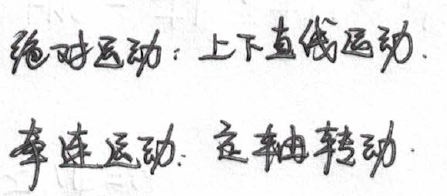 绝对运动：上下直线运动.
牵连运动：定轴转动.